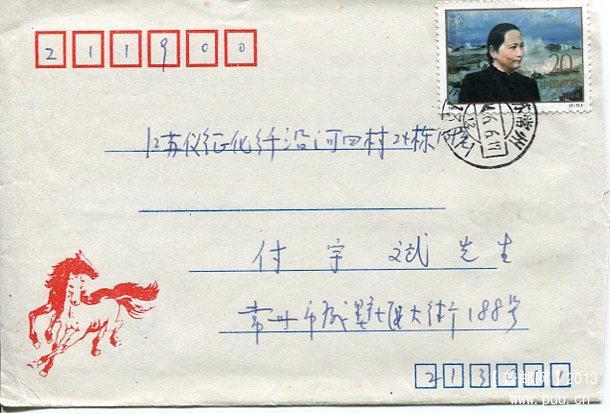 211900
20
江苏仪征化纤沿河四村24栋
付宇斌先生
常州市戚墅堰大街188号
213011
2013
www.puu.cn